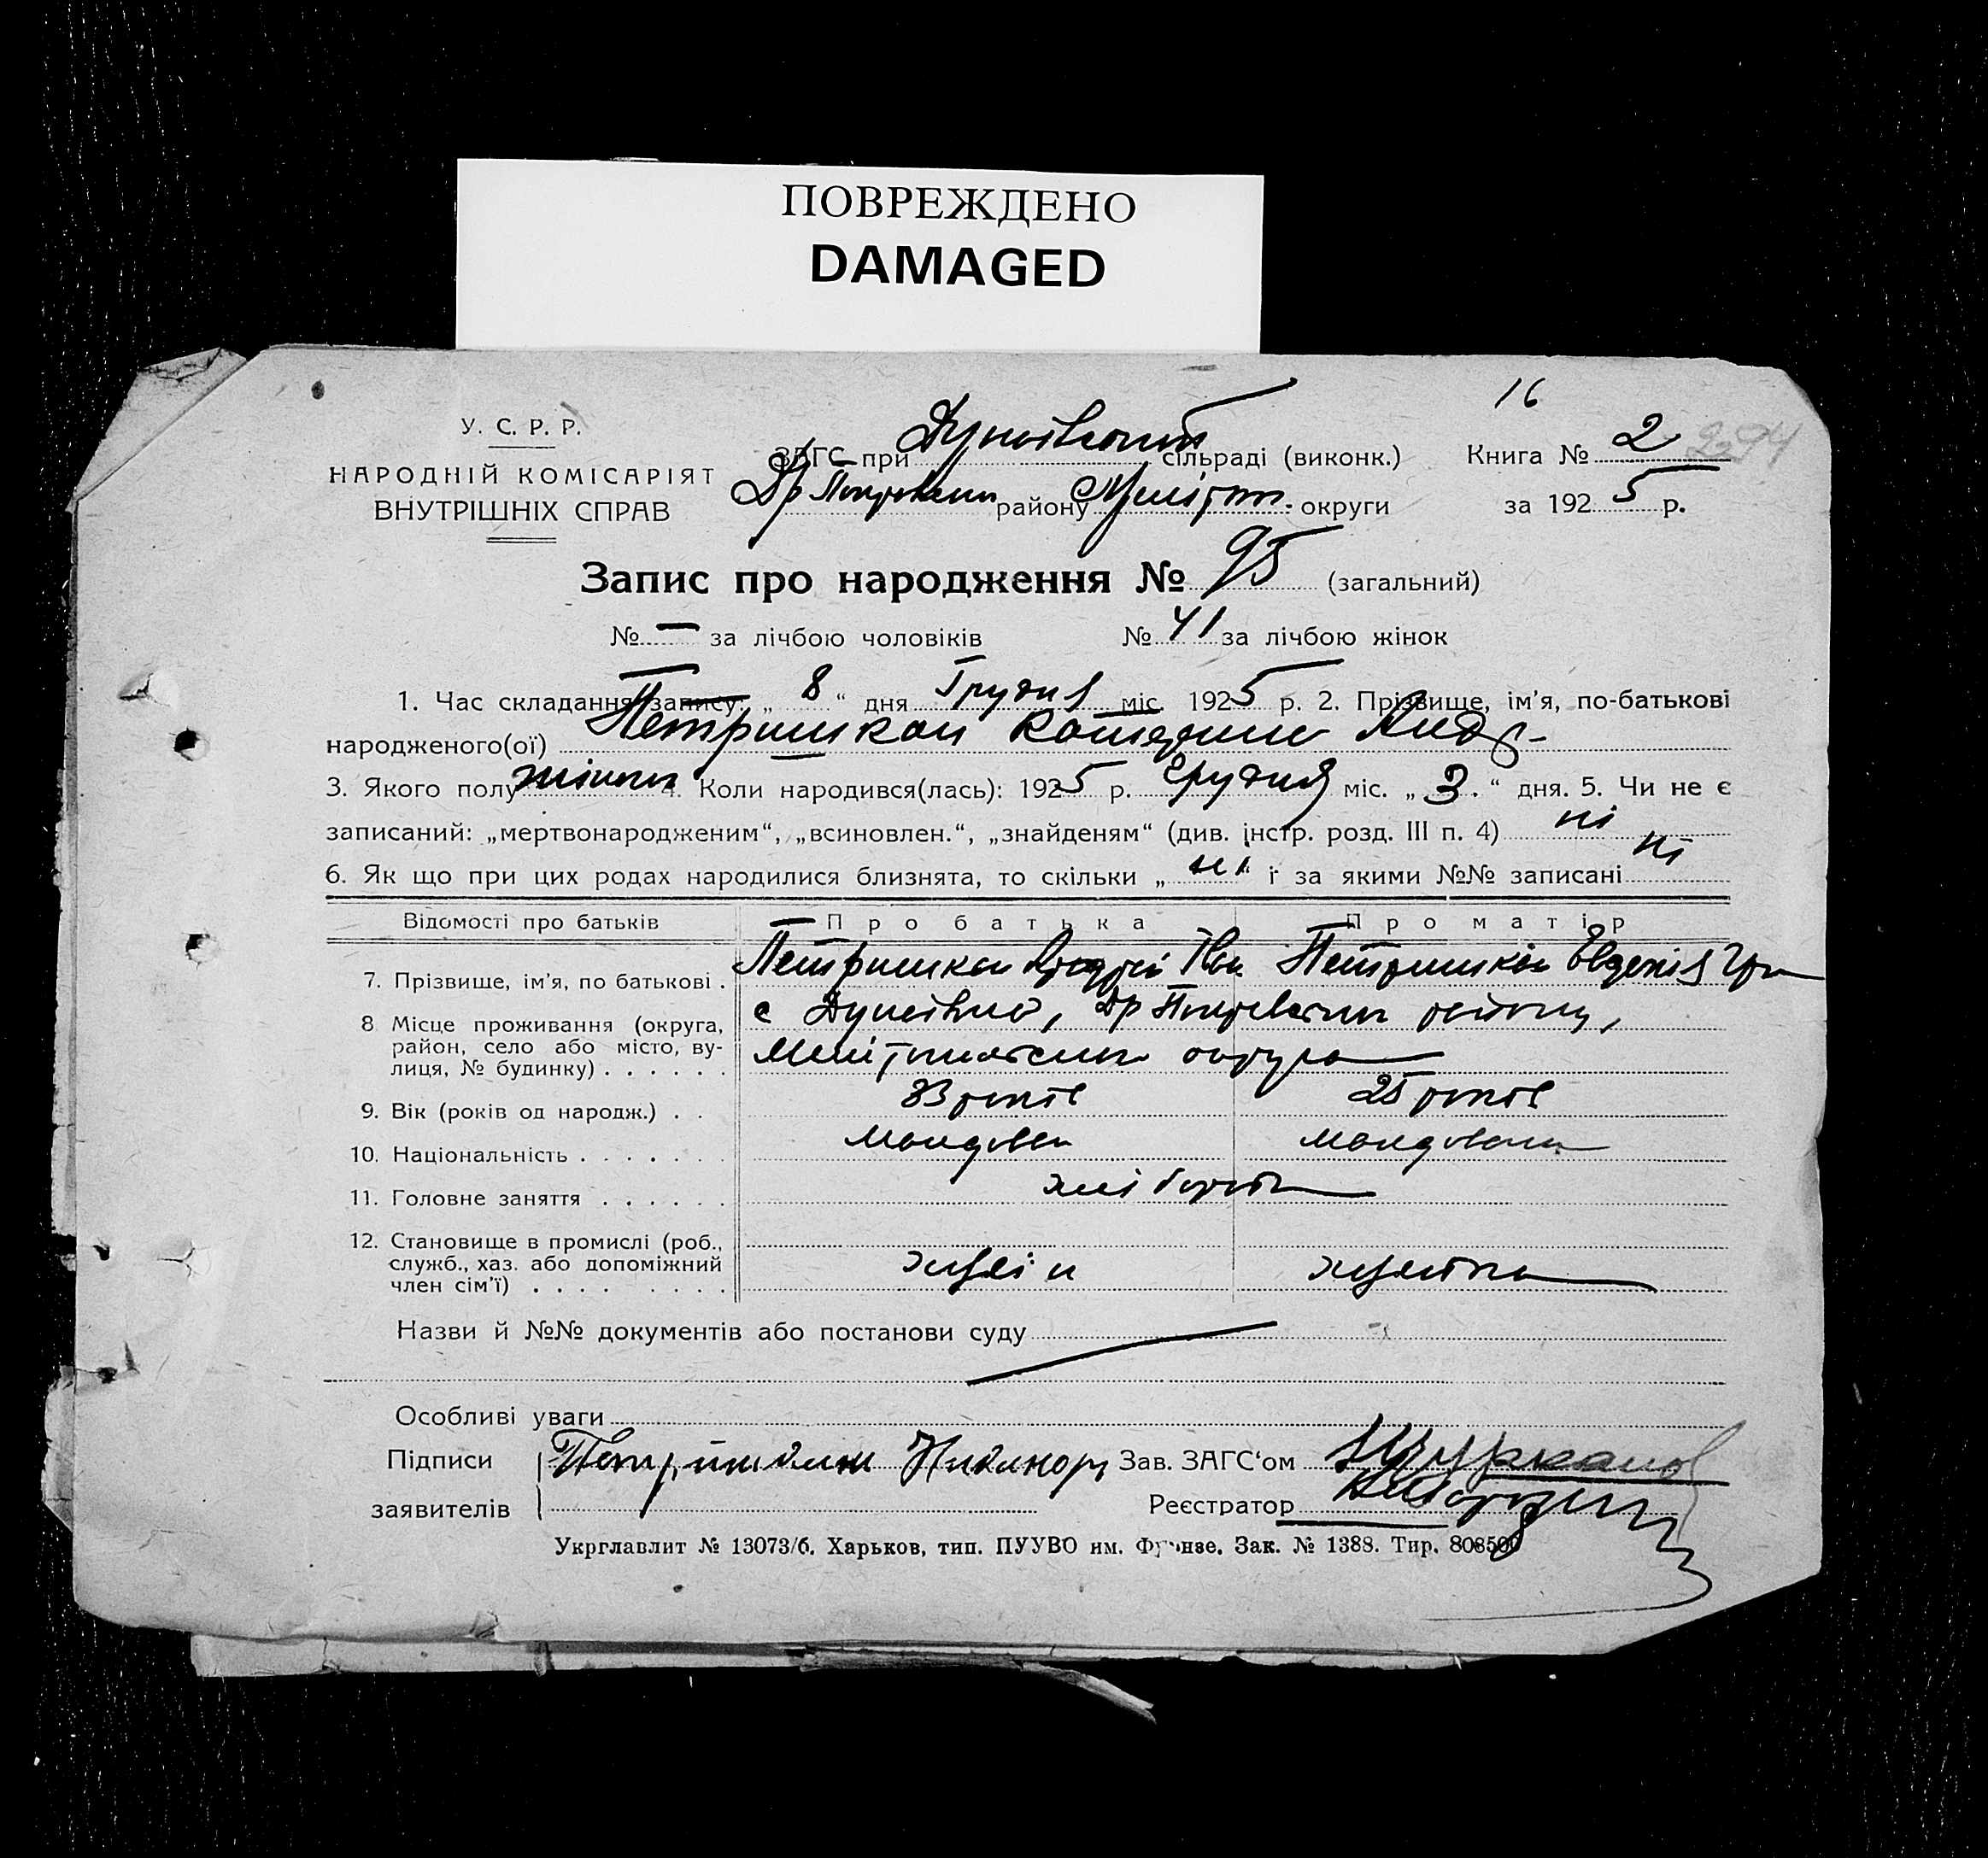 ПОВРЕЖДЕНО
DAMAGED
16
У. С. Р. Р.
НАРОДНІЙ КОМІСАРІЯТ
ВНУТРІШНІХ СПРАВ
ЗАГС при Дунаївській сільраді (виконк.) Книга № 2
району Меліт. округи за 1925 р.
Запис про народження № 95 (загальний)
№ — за лічбою чоловіків № 41 за лічбою жінок
1. Час складання запису: „ 8 “ дня Грудня міс. 1925 р. 2. Прізвище, ім'я, по-батькові
народженого(ої) Катерина Андр-
3. Якого полу жіноч. 4. Коли народився(лась): 1925 р. Грудня міс. „ 3 . “ дня. 5. Чи не є
записаний: „мертвонародженим“, „всиновлен.“, „знайденям“ (див. інстр. розд. III п. 4) ні
6. Як що при цих родах народилися близнята, то скільки „ ні “ і за якими №№ записані ні
Відомості про батьків Про батька Про матір
7. Прізвище, ім'я, по батькові . Андрій Іван Евгенія Гр
8 Місце проживання (округа, район, село або місто, вулиця, № будинку) . . . . . . с Дунаївка, району,
округа
9. Вік (років од народж.) . . 33 років 25 років
10. Національність . . . . . . . Молдован Молдованка
11. Головне заняття . . . . . . хлібороби
12. Становище в промислі (роб., служб., хаз. або допоміжний член сім'ї) . . . . . . . . хазяїн хазяйка
Назви й №№ документів або постанови суду
Особливі уваги
Підписи Никанор Зав. ЗАГС'ом
заявителів Реєстратор
Укрглавлит № 13073/б. Харьков, тип. ПУУВО им. Фрунзе. Зак. № 1388. Тир. 808500